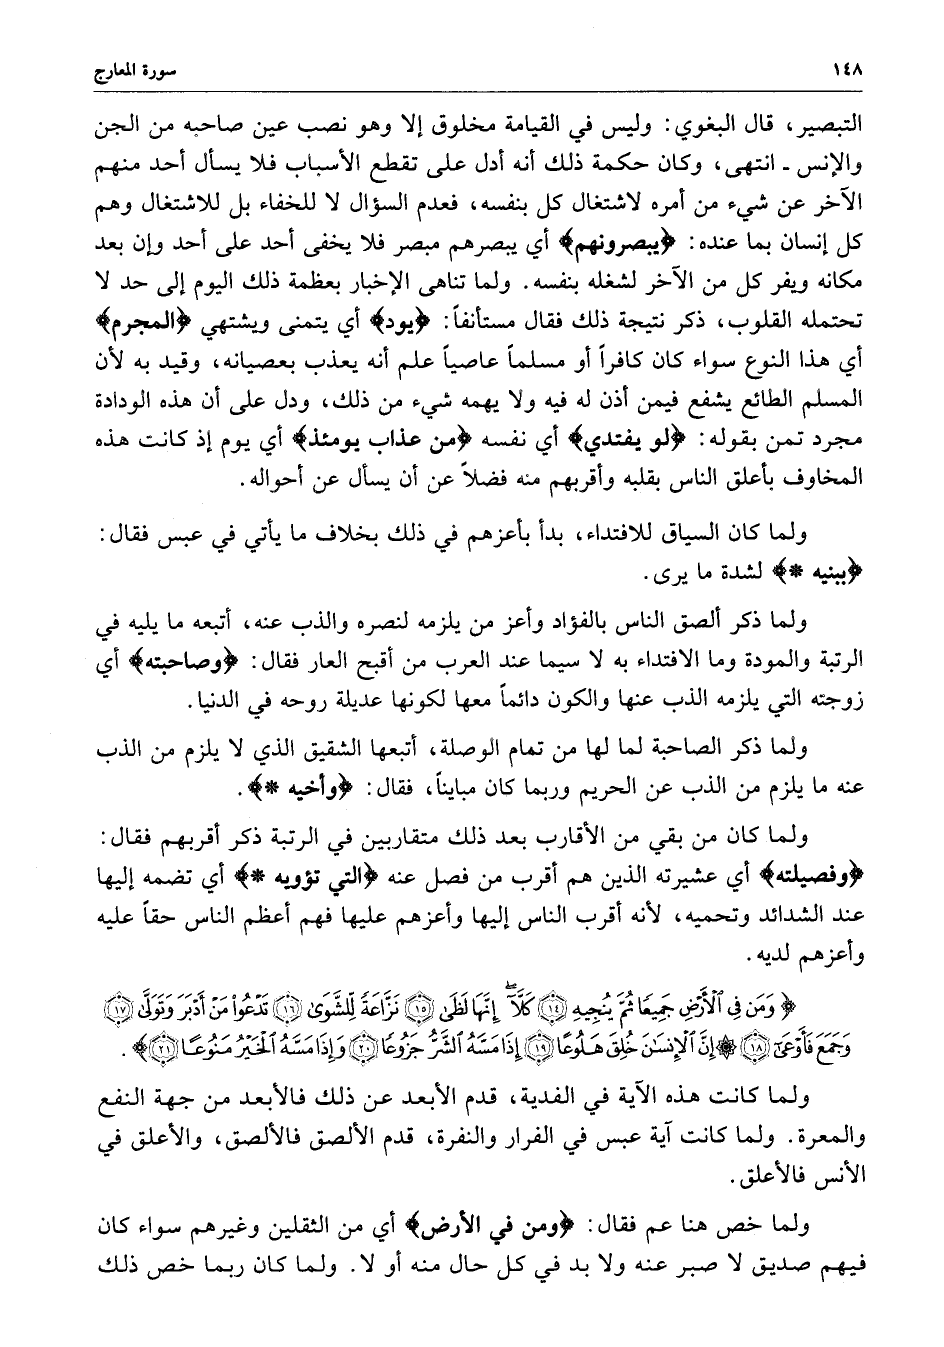 ١٤٨ سورة المعارج
التبصير، قال البغوي: وليس في القيامة مخلوق إلا وهو نصب عين صاحبه من الجن
والإنس ـ انتهى، وكان حكمة ذلك أنه أدل على تقطع الأسباب فلا يسأل أحد منهم
الآخر عن شيء من أمره لاشتغال كل بنفسه، فعدم السؤال لا للخفاء بل للاشتغال وهم
كل إنسان بما عنده: ﴿يبصرونهم﴾ أي يبصرهم مبصر فلا يخفى أحد على أحد وإن بعد
مكانه ويفر كل من الآخر لشغله بنفسه. ولما تناهى الإخبار بعظمة ذلك اليوم إلى حد لا
تحتمله القلوب، ذكر نتيجة ذلك فقال مستأنفاً: ﴿يود﴾ أي يتمنى ويشتهي ﴿المجرم﴾
أي هذا النوع سواء كان كافراً أو مسلماً عاصياً علم أنه يعذب بعصيانه، وقيد به لأن
المسلم الطائع يشفع فيمن أذن له فيه ولا يهمه شيء من ذلك، ودل على أن هذه الودادة
مجرد تمن بقوله: ﴿لو يفتدي﴾ أي نفسه ﴿من عذاب يومئذ﴾ أي يوم إذ كانت هذه
المخاوف بأعلق الناس بقلبه وأقربهم منه فضلاً عن أن يسأل عن أحواله.
ولما كان السياق للافتداء، بدأ بأعزهم في ذلك بخلاف ما يأتي في عبس فقال:
﴿ببنيه *﴾ لشدة ما يرى.
ولما ذكر ألصق الناس بالفؤاد وأعز من يلزمه لنصره والذب عنه، أتبعه ما يليه في
الرتبة والمودة وما الافتداء به لا سيما عند العرب من أقبح العار فقال: ﴿وصاحبته﴾ أي
زوجته التي يلزمه الذب عنها والكون دائماً معها لكونها عديلة روحه في الدنيا.
ولما ذكر الصاحبة لما لها من تمام الوصلة، أتبعها الشقيق الذي لا يلزم من الذب
عنه ما يلزم من الذب عن الحريم وربما كان مبايناً، فقال: ﴿وأخيه *﴾.
ولما كان من بقي من الأقارب بعد ذلك متقاربين في الرتبة ذكر أقربهم فقال:
﴿وفصيلته﴾ أي عشيرته الذين هم أقرب من فصل عنه ﴿التي تؤويه *﴾ أي تضمه إليها
عند الشدائد وتحميه، لأنه أقرب الناس إليها وأعزهم عليها فهم أعظم الناس حقاً عليه
وأعزهم لديه.
﴿وَمَن فِي ٱلْأَرْضِ جَمِيعًا ثُمَّ يُنجِيهِ ١٤ كَلَّآ ۖ إِنَّهَا لَظَىٰ ١٥ نَزَّاعَةً لِّلشَّوَىٰ ١٦ تَدْعُوا۟ مَنْ أَدْبَرَ وَتَوَلَّىٰ ١٧
وَجَمَعَ فَأَوْعَىٰٓ ١٨ ۞ إِنَّ ٱلْإِنسَٰنَ خُلِقَ هَلُوعًا ١٩ إِذَا مَسَّهُ ٱلشَّرُّ جَزُوعًا ٢٠ وَإِذَا مَسَّهُ ٱلْخَيْرُ مَنُوعًا ٢١﴾.
ولما كانت هذه الآية في الفدية، قدم الأبعد عن ذلك فالأبعد من جهة النفع
والمعرة. ولما كانت آية عبس في الفرار والنفرة، قدم الألصق فالألصق، والأعلق في
الأنس فالأعلق.
ولما خص هنا عم فقال: ﴿ومن في الأرض﴾ أي من الثقلين وغيرهم سواء كان
فيهم صديق لا صبر عنه ولا بد في كل حال منه أو لا. ولما كان ربما خص ذلك